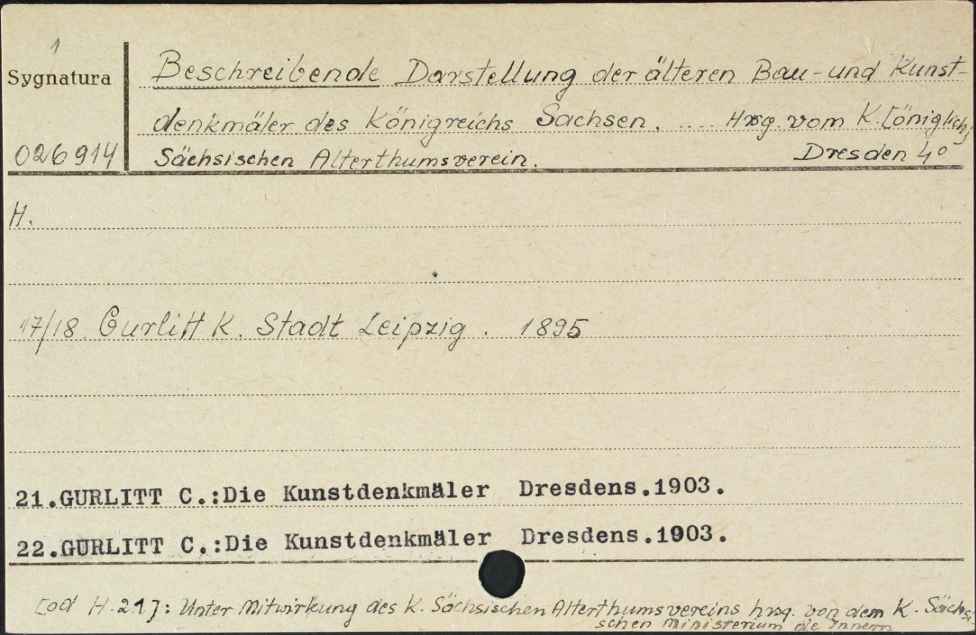 1
Sygnatura
Beschreibende Darstellung der älteren Bau- und Kunst-
denkmäler des Königreichs Sachsen. ... Hrsg. vom K.[öniglich]
026914
Sächsischen Alterthumsverein. Dresden 4°
H.
17/18 Gurlitt K. Stadt Leipzig. 1895
21.GURLITT C.:Die Kunstdenkmäler Dresdens.1903.
22.GURLITT C.:Die Kunstdenkmäler Dresdens.1903.
[od H.21]: Unter Mitwirkung des K. Sächsischen Alterthumsvereins hrsg. von dem K. Sächsi-
schen Ministerium de Innern